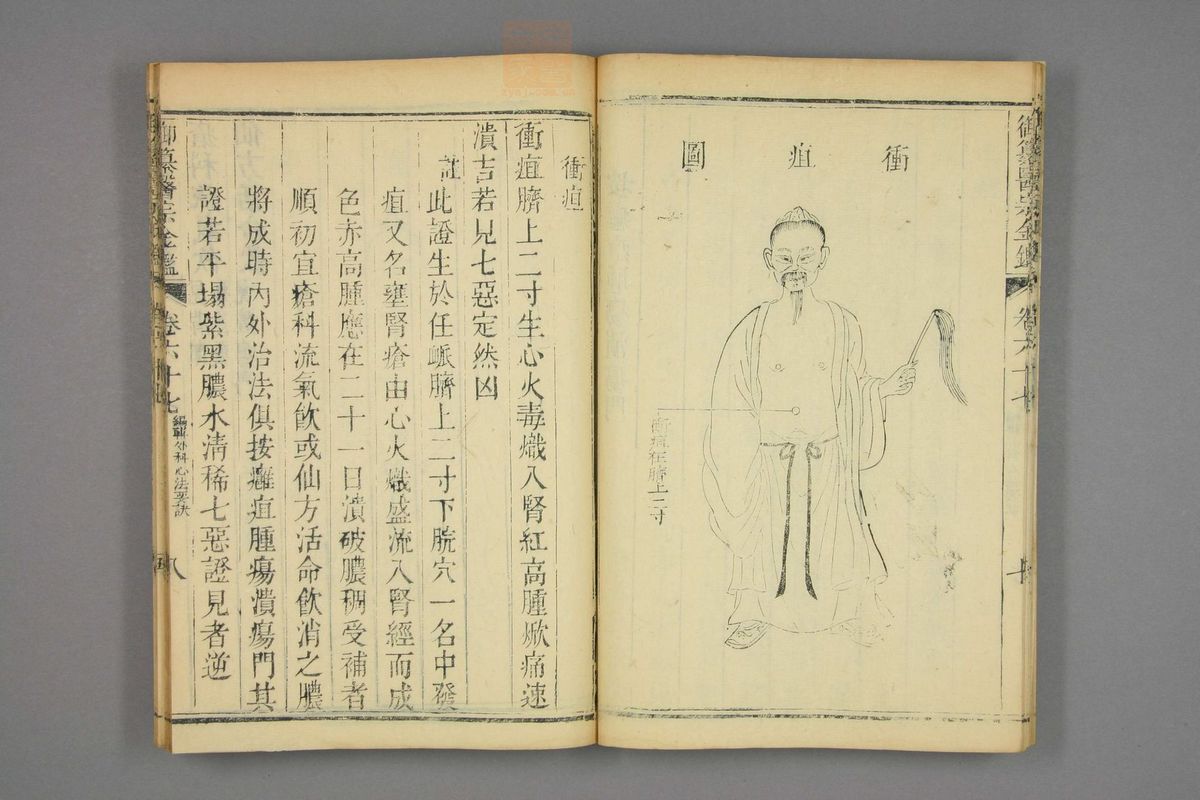 衝疽圖
衝疽在臍上二寸
御纂醫宗金鑑
卷六十七
衝疽
衝疽臍上二寸生心火毒熾入腎紅高腫焮痛速
潰吉若見七惡定然凶
註此證生於任脈臍上二寸下脘穴一名中發
疽又名壅腎瘡由心火熾盛流入腎經而成
色赤高腫應在二十一日潰破膿稠受補者
順初宜瘡科流氣飲或仙方活命飲消之膿
將成時內外治法俱按癰疽腫瘍潰瘍門其
證若平塌紫黑膿水清稀七惡證見者逆
御纂醫宗金鑑
卷六十七
編輯外科心法要訣
八